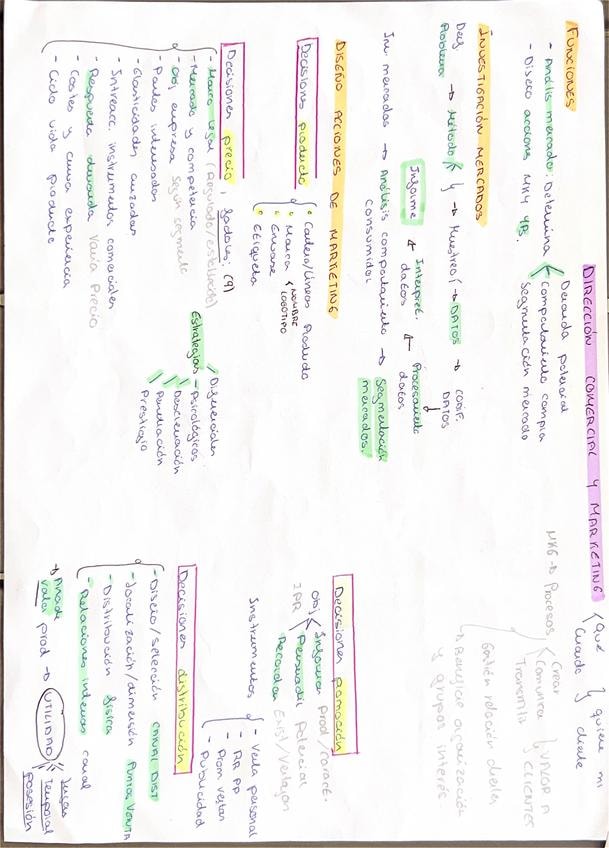 DIRECCIÓN COMERCIAL Y MARKETING { Qué Cuándo } quiere mi cliente
MKG → Procesos { Crear Comunicar Transmitir } VALOR A CLIENTES
Gestión relación clientes
→ Beneficiar organización y grupos interés
FUNCIONES
- Análisis mercado: Determina < Demanda potencial
Comportamiento compra
Segmentación mercado
- Diseño acciones MKG 4Ps.
INVESTIGACIÓN MERCADOS
Def Problema → Método → Muestreo → DATOS → CODIF. DATOS
Informe ← Interpret. datos ← Procesamiento datos
Inv mercados → Análisis comportamiento consumidor → Segmentación mercados.
DISEÑO ACCIONES DE MARKETING
Decisiones producto
Cartera/Líneas Producto
Marca < NOMBRE LOGOTIPO
Envase
Etiqueta
Decisiones precio
factores: (9)
- Marco legal (Regulado/establecido)
- Mercado y competencia
- Obj empresa según segmento
- Partes interesadas
- Elasticidades cruzadas
- Interacc. instrumentos comerciales
- Respuesta demanda varía Precio
- Costes y curva experiencia
- Ciclo vida producto
Estrategias
Diferenciales
Psicológicas
Penetración
Prestigio
Decisiones promoción
Obj IPR < Informar prod/caract.
Persuadir Potencial
Recordar Exist/Ventajas
Instrumentos
- Venta personal
- RR PP
- Prom ventas
- Publicidad
Decisiones distribución
- Diseño/selección CANAL DIST
- Localización/dimensión PUNTOS VENTA
- Distribución física
- Relaciones internas canal
→ Añade valor prod → UTILIDAD
Temporal
posesión